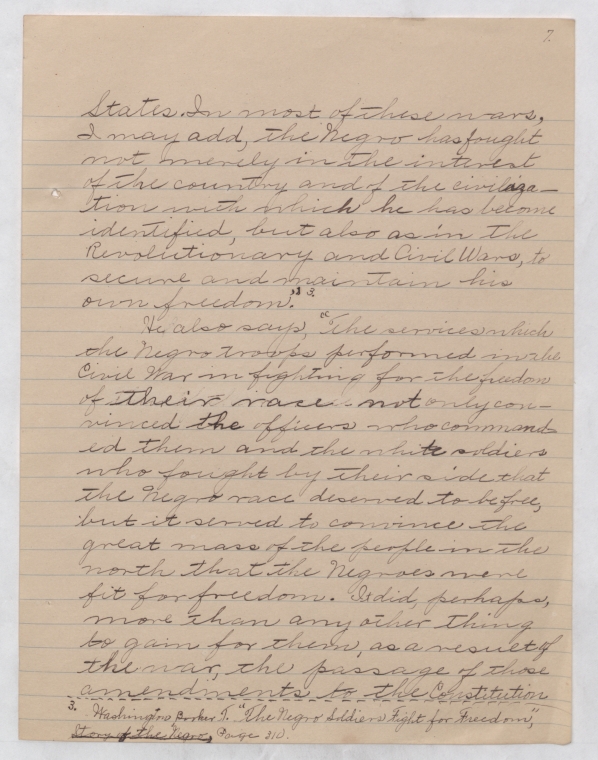 7.
States. In most of these wars,
I may add, the Negro has fought
not merely in the interest
of the country and of the civiliza-
tion with which he has become
identified, but also as in the
Revolutionary and Civil Wars, to
secure and maintain his
own freedom." 3.
He also says, "The services which
the Negro troops performed in the
Civil War in fighting for the freedom
of their race not only con-
vinced the officers who command-
ed them and the white soldiers
who fought by their side that
the Negro race deserved to be free,
but it served to convince the
great mass of the people in the
north that the Negroes were
fit for freedom. It did, perhaps,
more than any other thing
to gain for them, as a result of
the war, the passage of those
amendments to the Constitution
3. Washington Booker T. "The Negro Soldiers Fight for Freedom",
Story of the Negro, Page 310.